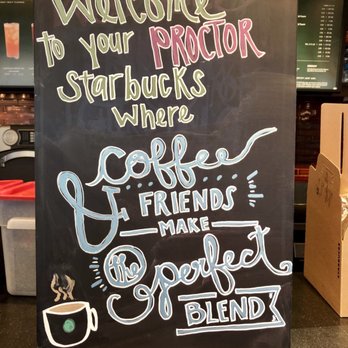 Welcome
to your PROCTOR
Starbucks
Where
Coffee
& FRIENDS
MAKE
the perfect
BLEND